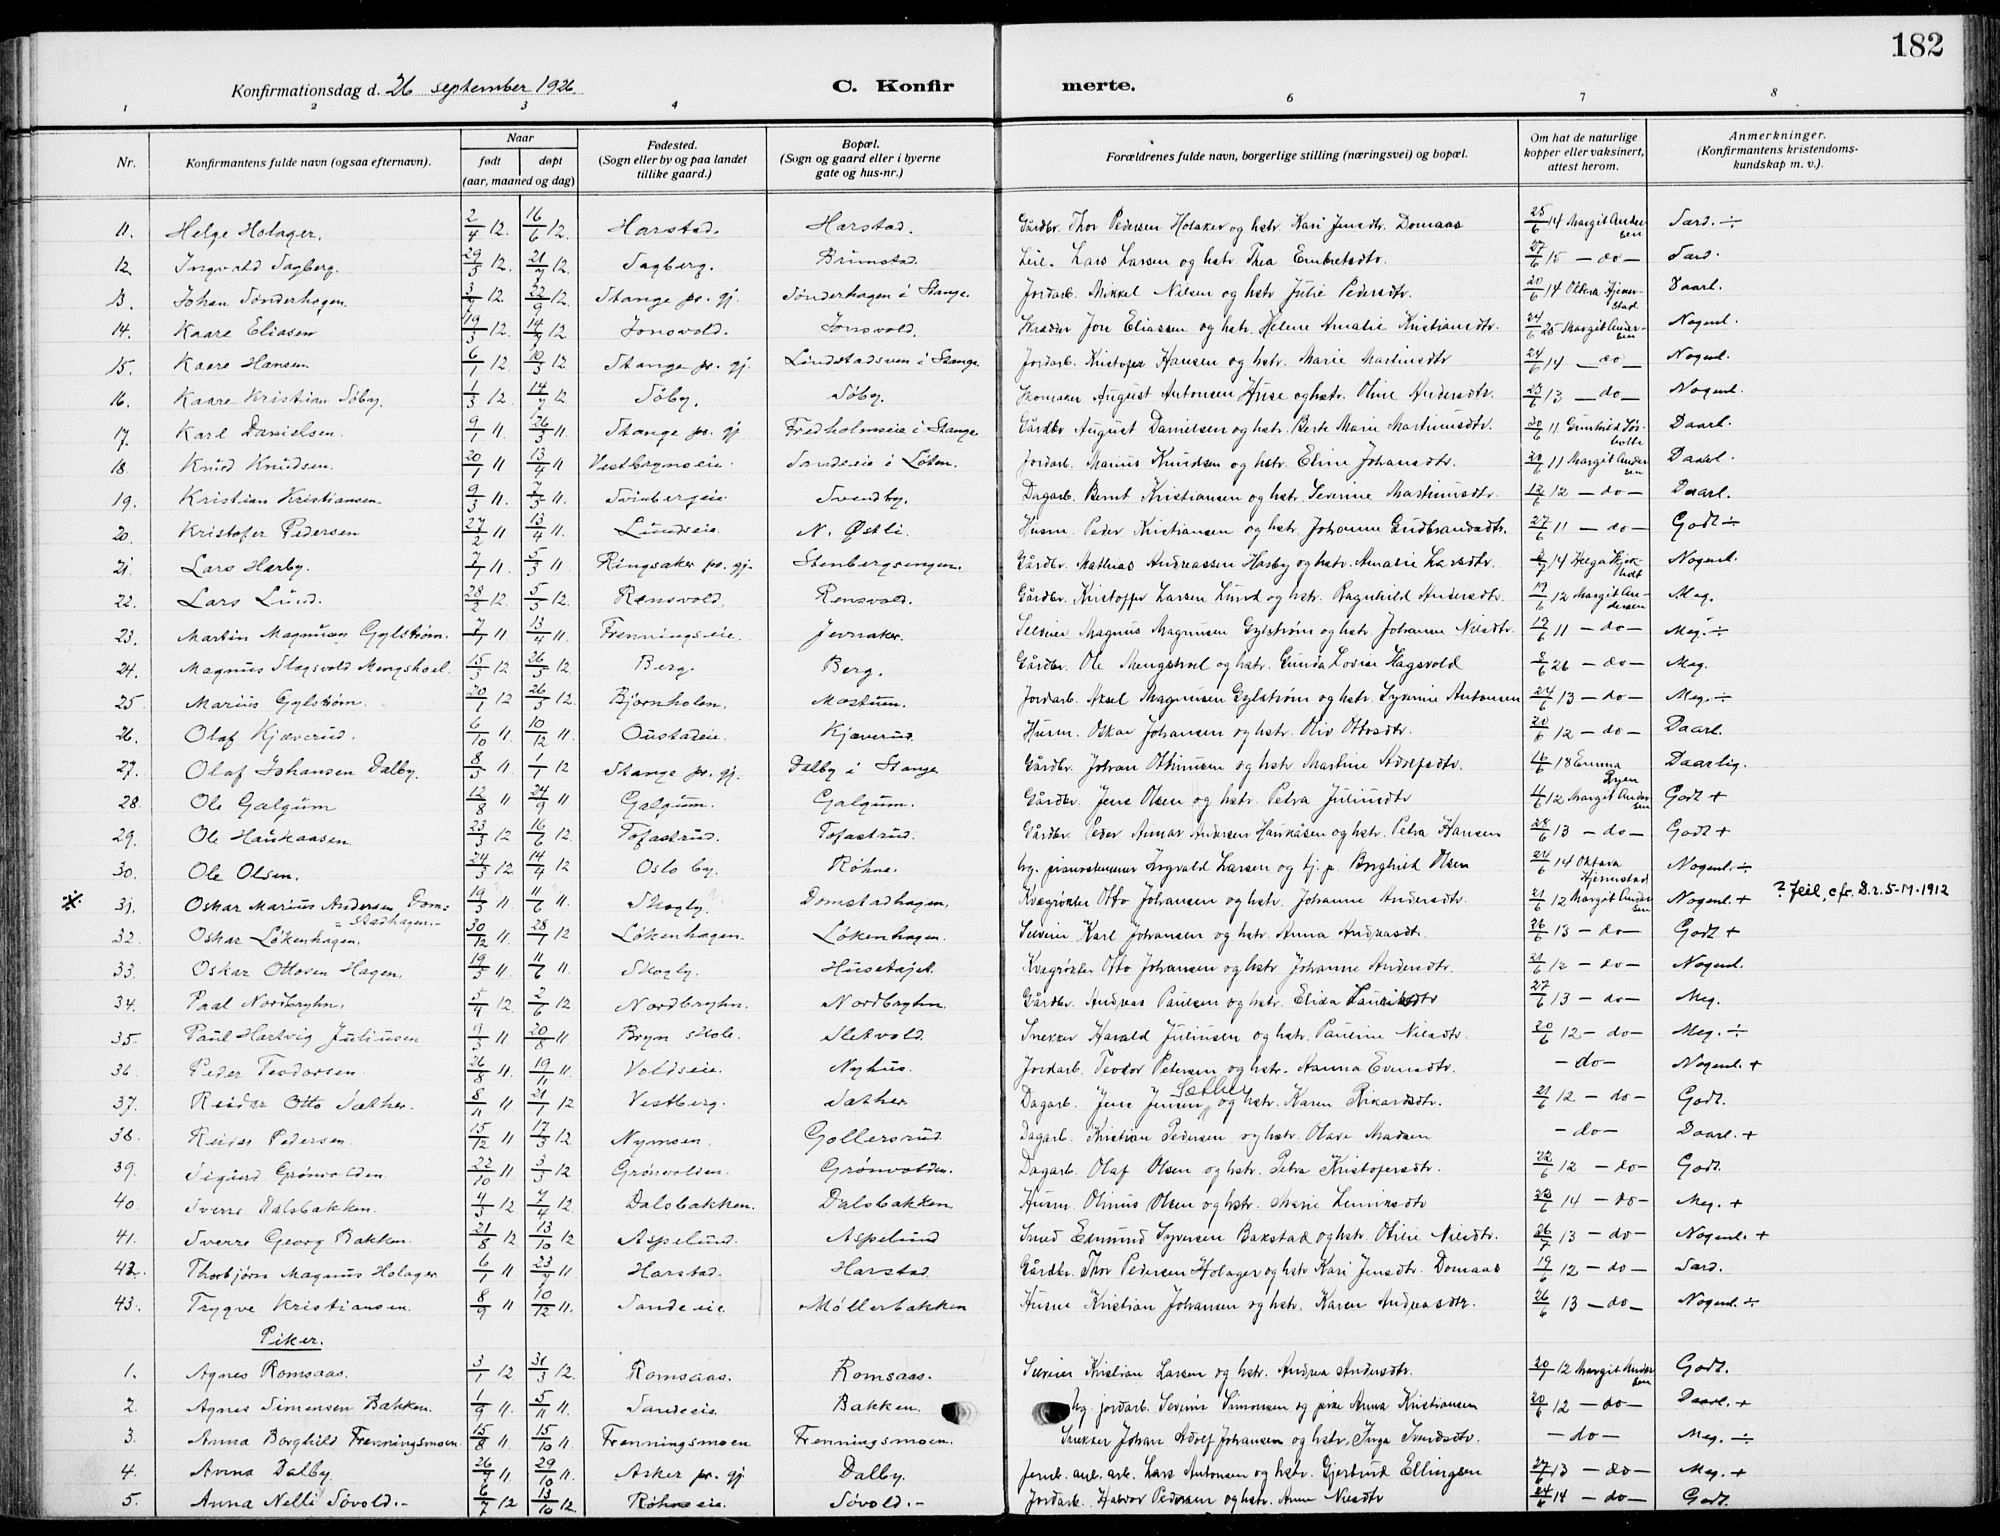 182
Konfirmationsdag d. 26 september 1926. C. Konfirmerte.
1 2 3 4 6 7 8
Nr. Konfirmantens fulde navn (ogsaa efternavn). Naar født døpt (aar, maaned og dag) Fødested. (Sogn eller by og paa landet tillike gaard.) Bopæl. (Sogn og gaard eller i byerne gate og hus-nr.) Forældrenes fulde navn, borgerlige stilling (næringsvei) og bopæl. Om hat de naturlige kopper eller vaksinert, attest herom. Anmerkninger. (Konfirmantens kristendomskundskap m. v.).
11. Helge Holager. 2/4 12. 16/6 12. Harstad. Harstad. Gårdbr. Thor Pedersen Holaker og hstr. Kari Jensdtr. Domaas 25/6 14 Margit Andersen Særd. ÷
12. Ingvald Sagberg. 29/5 12. 21/7 12. Sagberg. Brimstad. Leil. Lars Larsen og hstr. Thea Embretsdtr. 27/6 15 – do – Særd.
13. Johan Sønderhagen. 12. 22/9 12. Stange pr. gj. Sønderhagen i Stange. Jordarb. Mikkel Nilsen og hstr. Julie Pedersdtr. 20/6 14 Daarl.
14. Kaare Eliasen 19/3 12. 14/7 12. Jonsvold. Jonsvold. Skrædder Jon Eliassen og hstr. Helene Amalie Kristiansdtr. 24/6 25 Margit Andersen Nogenl.
15. Kaare Hansen 6/1 12. 10/3 12 Stange pr. gj. Lindstadsven i Stange Jordarb. Kristofer Hansen og hstr. Marie Martinsdtr 24/6 14 – do – Nogenl.
16. Kaare Kristian Søby. 1/3 12 14/7 12 Søby. Søby. Skomaker August Antonsen Huse og hstr. Oline Andersdtr. 23/6 13 – do – Nogenl.
17. Karl Danielsen. 9/1 11. 26/3 11. Stange pr. gj Fredholmseie i Stange Gårdbr August Danielsen og hstr. Berte Marie Martinusdtr. 30/6 11 Daarl.
18. Knud Knudsen. 20/1 11 13/4 11 Vestbrynseie. Sandeeie i Løten. Jordarb. Marius Knudsen og hstr. Eline Johansdtr. 20/6 11 Margit Andersen Daarl.
19. Kristian Kristiansen 9/3 11. 11. Svinbergeie Svendby. Dagarb. Bernt Kristiansen og hstr. Severine Martinusdtr. 12/6 12 – do – Daarl.
20. Kristofer Pedersen 27/2 11 13/4 11. Lundseie. N. Østli. Husm. Peder Kristiansen og hstr. Johanne Gudbrandsdtr. 27/6 11 – do – Godt ÷
21. Lars Hærby. 7/1 11. 5/3 11 Ringsaker pr. gj. Stenbergsengen. Gårdbr. Mathias Andreassen Hærby og hstr. Amalie Larsdtr. 14 Nogenl.
22. Lars Lund. 28/2 12. 5/5 12. Rensvold. Rensvold. Gårdbr. Kristoffer Larsen Lund og hstr. Ragnhild Andersdtr. 12 Margit Andersen Meg.
23. Martin Magnusen Gylstrøm. 7/1 11 13/4 11. Frenningseie. Jevnaker. Selveier Magnus Magnusen Gylstrøm og hstr. Johanne Nilsdtr. 19/6 11 – do – Meg. ÷
24. Magnus Slagsvold Mengshoel. 15/3 12 26/5 12. Berg. Berg. Gårdbr. Ole Mengshoel og hstr. Gunda Lovise Slagsvold 8/6 26 – do – Meg.
25. Marius Gylstrøm. 20/1 12 26/5 12. Bjørnholen. Mostuen. Jordarb. Aksel Magnusen Gylstrøm og hstr. Syverine Antonsen 24/6 13 – do – Meg. ÷
26. Olaf Kjæverud. 6/10 11 10/12 11. Oustadeie. Kjæverud. Husm. Oskar Johansen og hstr. Oliv Ottosdtr. 20/6 12 – do – Daarl.
27. Olaf Johansen Dalby. 8/5 11 1/1 12 Stange pr. gj. Dalby i Stange Gårdbr. Johan Othinusen og hstr Martine Adolfsdtr. 18 Emma Ryen Daarlig.
28. Ole Galgum 12/8 11 24/9 11 Galgum. Galgum. Gårdbr. Jens Olsen og hstr. Petra Juliusdtr 4/6 12 Margit Andersen Godt +
29. Ole Haukaasen 23/3 12 16/6 12. Tofastrud. Tofastrud. Gårdbr. Peder Andersen Haukåsen og hstr. Petra Hansen 28/6 13 – do – Godt +
30. Ole Olsen. 24/3 12. 14/4 12 Oslo by. Røhne. Ug. pianostemmer Ingvald Larsen og tj. p. Borghild Olsen 24/6 14 Oktava Hjemstad Nogenl. ÷
31. Oskar Marius Andersen Domstadhagen. 19/3 11 11/6 11. Skogby. Domstadhagen. Kvægrøkter Otto Johansen og hstr. Johanne Andersdtr. 21/6 12 Margit Andersen Nogenl. + ? Feil, cfr. D.r. 5-M-1912
32. Oskar Løkenhagen. 30/12 11 28/1 12 Løkenhagen. Løkenhagen. Selveier Karl Johansen og hstr. Anna Andreasdtr. 26/6 13 – do – Godt +
33. Oskar Ottosen Hagen. 19/3 11. 11/6 11. Skogby. Husetajet. Kvægrøkter Otto Johansen og hstr Johanne Andersdtr. 21/6 12 – do – Nogenl.
34. Paal Nordbryhn. 12 2/6 12 Nordbryhn. Nordbryhn Gårdbr. Andreas Paulsen og hstr. Elida 27/6 13 – do – Meg.
35. Paul Hartvig Juliusen 11. 20/8 11 Bryn skole. Sletvold Snekker Harald Juliusen og hstr. Pauline Nilsdtr. 20/6 12 – do – Meg. ÷
36. Peder Teodorsen. 26/8 11. 19/11 11. Voldseie. Nyhus. Jordarb. Teodor Petersen og hstr. Hanna Evensdtr. – do – Nogenl. +
37. Reidar Otto Sæther. 8/11 11 21/1 12 Vestberg. Sæther Dagarb. Jens Jensen Sæther og hstr. Karen Rikardsdtr. 21/6 12 – do – Godt.
38. Reidar Pedersen. 15/12 11 17/3 12 Nymoen. Gollersrud Dagarb. Kristian Pedersen og hstr. Olave Madsen – do – Daarl. +
39. Sigurd Grønvolden. 22/10 11. 3/3 12 Grønvolden. Grønvolden. Dagarb. Olaf Olsen og hstr. Petra Kristofersdtr. 22/6 12 – do – Godt.
40 Sverre Dalsbakken. 4/3 12 7/4 12 Dalsbakken. Dalsbakken Husm. Olinus Olsen og hstr. Marie 14 – do – Meg. +
41. Sverre Georg Bakken. 21/8 12 13/10 12 Aspelund. Aspelund Smed Edmund Syversen Bakstad og hstr. Otilie Nilsdtr. 26/7 13 – do – Nogenl. +
42. Thorbjørn Magnus Holager 6/1 11 23/4 11. Harstad. Harstad Gårdbr. Thor Pedersen Holager og hstr Kari Jensdtr. Domaas 19/6 12 – do – Særd.
43. Trygve Kristiansen. 8/9 11 10/12 11. Sandeeie. Møllerbakken Husm Kristian Johansen og hstr. Karen Andreasdtr. 26/6 13 – do – Nogenl. ÷
Piker.
1. Agnes Romsaas. 3/1 12 31/3 12. Romsaas. Romsaas. Selveier Kristian Larsen og hstr. Andrea Andersdtr. 20/7 12 Margit Andersen Godt.
2. Agnes Simensen Bakken. 1/9 11. 5/11 11. Sandeeie. Bakken. Ug. jordarb. Severin Simonsen og pike Anna Kristiansen 20/6 12 – do – Daarl. +
3. Anna Borghild Frenningsmoen. 15/8 11 15/10 11. Frenningsmoen. Frenningsmoen. Snekker Johan Adolf Johansen og hstr. Inga – do – Meg. ÷
4. Anna Dalby. 26/7 11. 29/10 11. Asker pr. gj Dalby. Jernb. anl. arb. Lars Antonsen og hstr. Gjertrud Ellingsen 27/6 13 – do – Meg. +
5. Anna Nelli Søvold. 6/7 12 13/10 12 Røhneeie. Søvold. Jordarb. Halvor Pedersen og hstr. Anne Nilsdtr 24/6 14 – do – Godt.